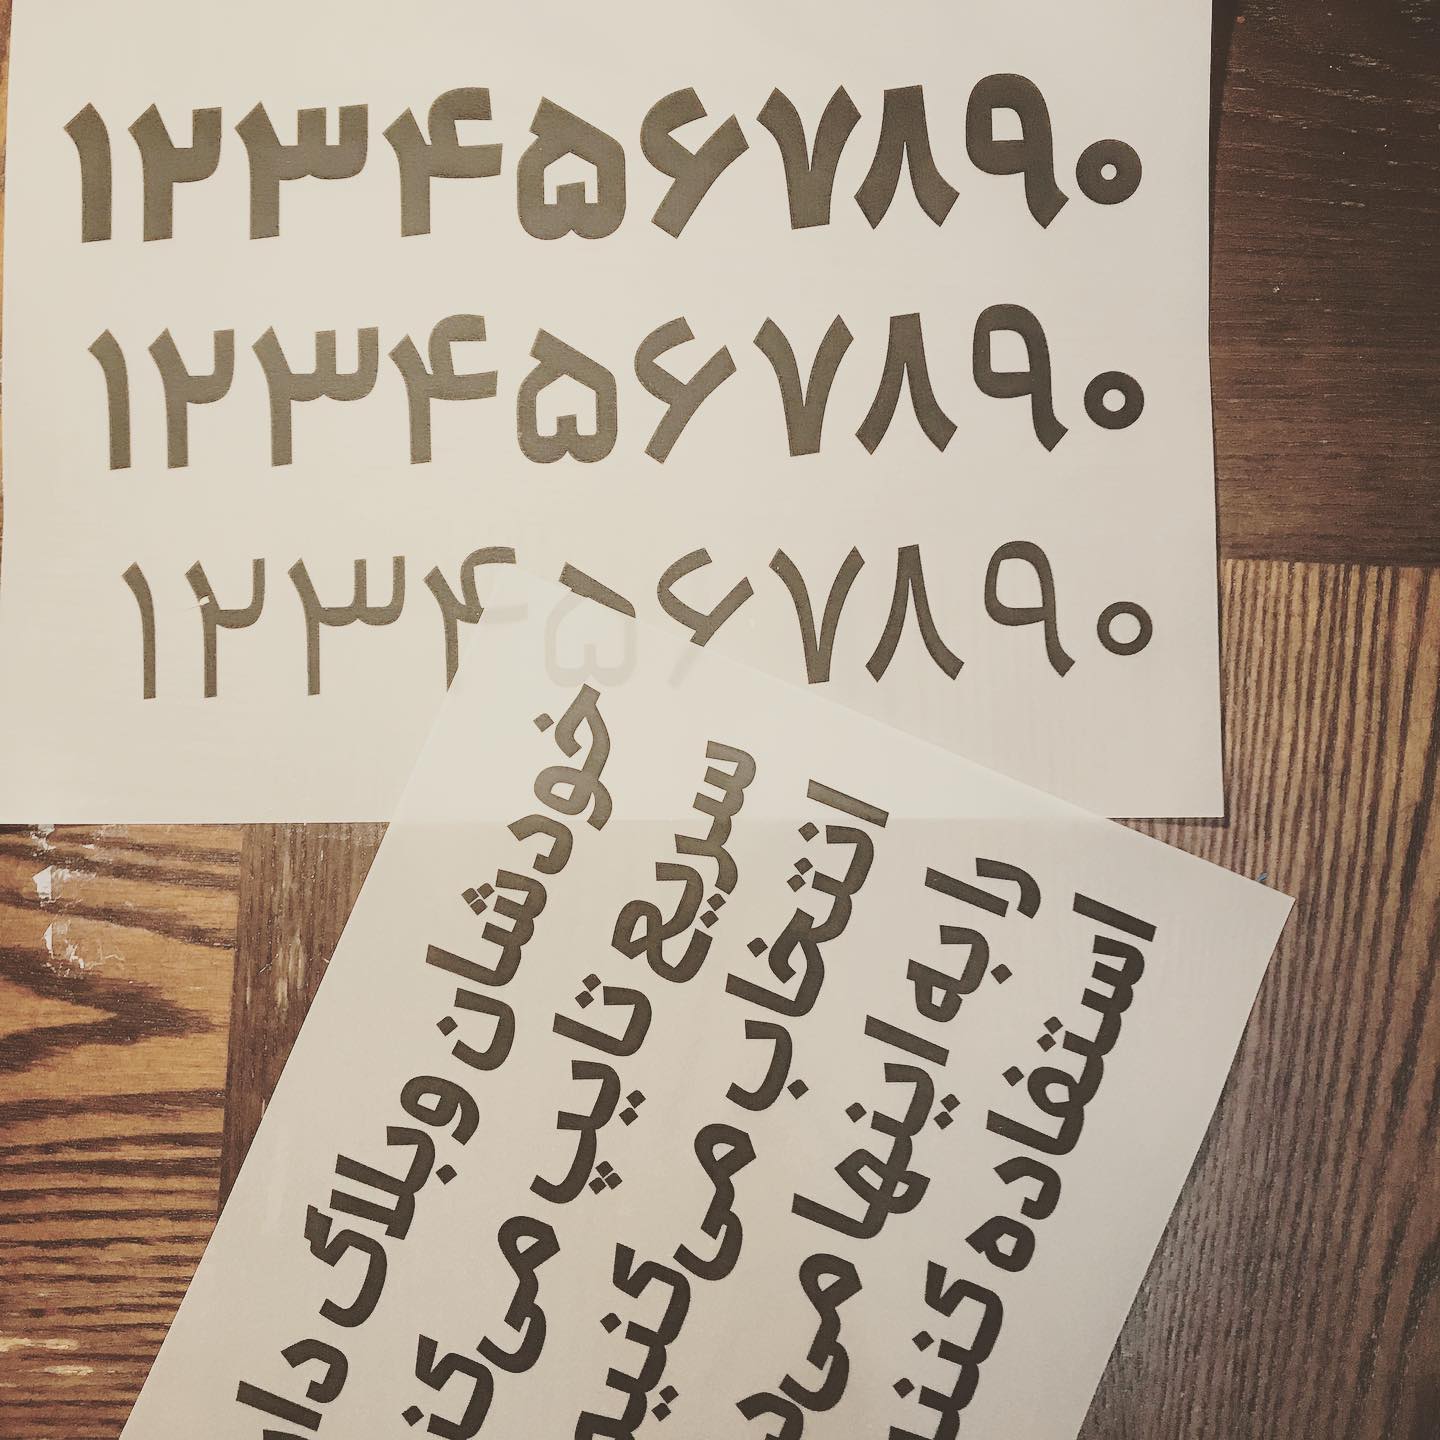 ۱۲۳۴۵۶۷۸۹۰
۱۲۳۴۵۶۷۸۹۰
۱۲۳۴۵۶۷۸۹۰
خودشان وبلاگ
سریع تایپ
انتخاب
را به اینها
استفاده